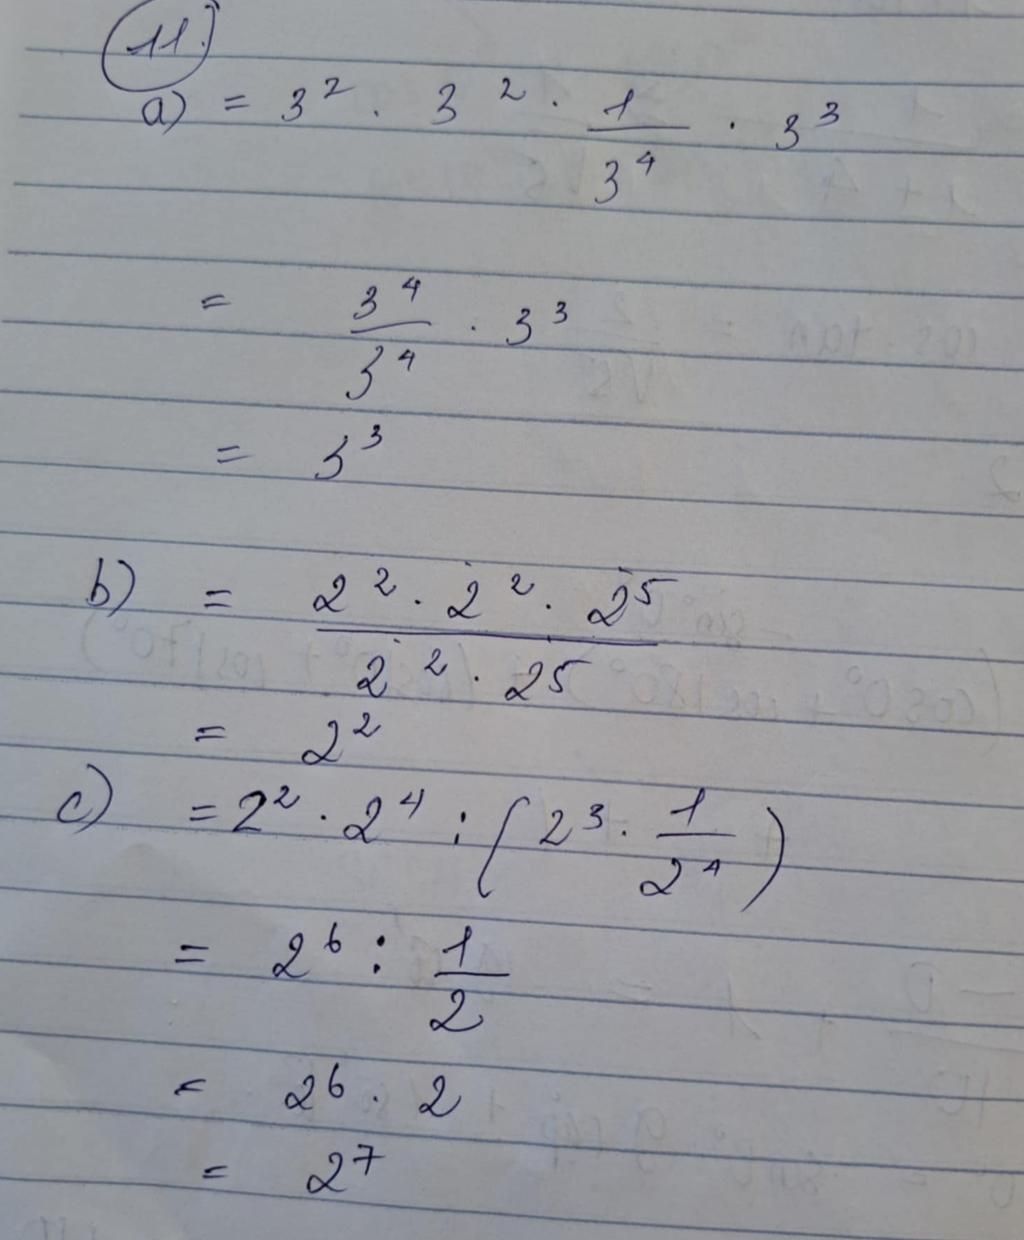 11.
a) = 3² . 3² . 1/3⁴ . 3³
= 3⁴/3⁴ . 3³
= 3³
b) = 2² . 2² . 2⁵ / 2² . 2⁵
= 2²
c) = 2² . 2⁴ : (2³ . 1/2⁴)
= 2⁶ : 1/2
= 2⁶ . 2
= 2⁷